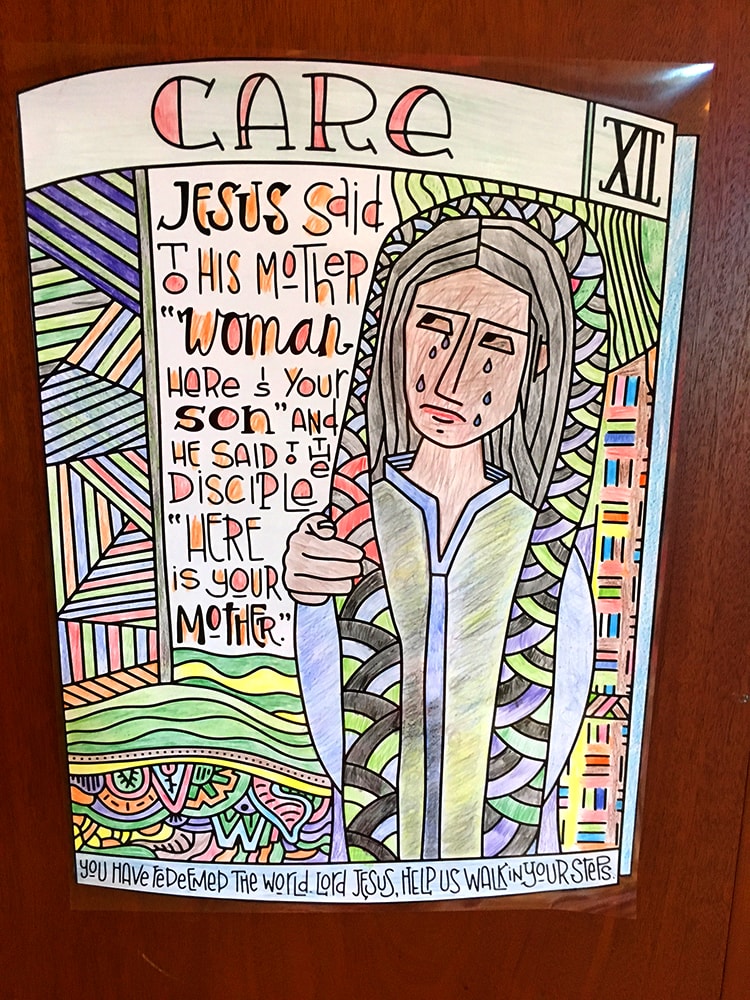 CARE
XII
JESUS said
TO HIS MOTHER
"WOMAN
HERE is YOUR
SON" AND
HE SAID TO THE
DISCIPLE
"HERE
IS YOUR
MOTHER."
YOU HAVE REDEEMED THE WORLD. LORD JESUS, HELP US WALK IN YOUR STEPS.